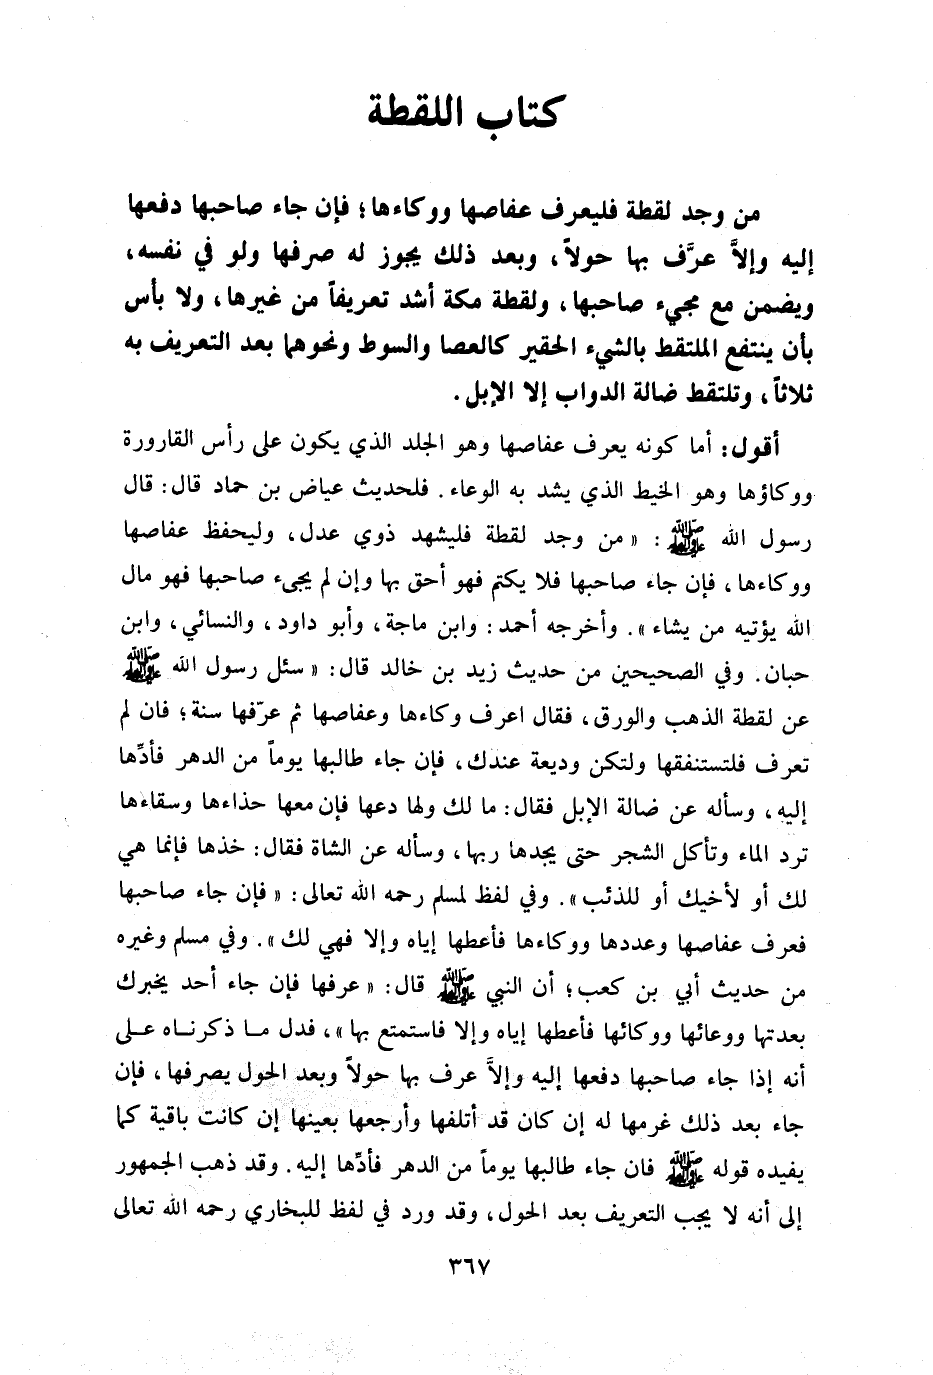 كتاب اللقطة
من وجد لقطة فليعرف عفاصها ووكاءها؛ فإن جاء صاحبها دفعها
إليه وإلاَّ عرَّف بها حولاً، وبعد ذلك يجوز له صرفها ولو في نفسه،
ويضمن مع مجيء صاحبها، ولقطة مكة أشد تعريفاً من غيرها، ولا بأس
بأن ينتفع الملتقط بالشيء الحقير كالعصا والسوط ونحوهما بعد التعريف به
ثلاثاً، وتلتقط ضالة الدواب إلا الإبل.
أقول: أما كونه يعرف عفاصها وهو الجلد الذي يكون على رأس القارورة
ووكاؤها وهو الخيط الذي يشد به الوعاء. فلحديث عياض بن حماد قال: قال
رسول الله ﷺ: «من وجد لقطة فليشهد ذوي عدل، وليحفظ عفاصها
ووكاءها، فإن جاء صاحبها فلا يكتم فهو أحق بها وإن لم يجيء صاحبها فهو مال
الله يؤتيه من يشاء». وأخرجه أحمد: وابن ماجة، وأبو داود، والنسائي، وابن
حبان. وفي الصحيحين من حديث زيد بن خالد قال: «سئل رسول الله ﷺ
عن لقطة الذهب والورق، فقال اعرف وكاءها وعفاصها ثم عرّفها سنة؛ فان لم
تعرف فلتستنفقها ولتكن وديعة عندك، فإن جاء طالبها يوماً من الدهر فأدِّها
إليه، وسأله عن ضالة الإبل فقال: ما لك ولها دعها فإن معها حذاءها وسقاءها
ترد الماء وتأكل الشجر حتى يجدها ربها، وسأله عن الشاة فقال: خذها فإنما هي
لك أو لأخيك أو للذئب». وفي لفظ لمسلم رحمه الله تعالى: «فإن جاء صاحبها
فعرف عفاصها وعددها ووكاءها فأعطها إياه وإلا فهي لك». وفي مسلم وغيره
من حديث أبي بن كعب؛ أن النبي ﷺ قال: «عرفها فإن جاء أحد يخبرك
بعدتها ووعائها ووكائها فأعطها إياه وإلا فاستمتع بها»، فدل ما ذكرناه على
أنه إذا جاء صاحبها دفعها إليه وإلاَّ عرف بها حولاً وبعد الحول يصرفها، فإن
جاء بعد ذلك غرمها له إن كان قد أتلفها وأرجعها بعينها إن كانت باقية كما
يفيده قوله ﷺ فان جاء طالبها يوماً من الدهر فأدِّها إليه. وقد ذهب الجمهور
إلى أنه لا يجب التعريف بعد الحول، وقد ورد في لفظ للبخاري رحمه الله تعالى
٣٦٧